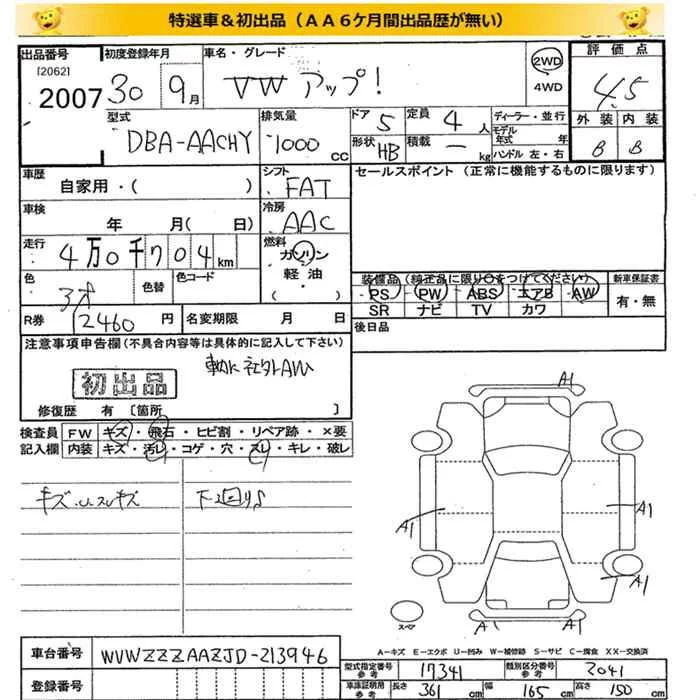 特選車＆初出品（ＡＡ６ケ月間出品歴が無い）
出品番号 初度登録年月 車名・グレード 評価点
[2062]
2007 30 9月 VW アップ! 2WD 4WD 4.5
型式 排気量 ドア 定員 ディーラー・並行 外装 内装
DBA-AACHY 1000cc 5 4人 モデル年式 年 B B
形状 HB 積載 - kg ハンドル 左・右
車歴 シフト セールスポイント（正常に機能するものに限ります）
自家用・（ ） FAT
車検 冷房
年 月（ 日） AAC
走行 燃料
4万0千704km ガソリン
軽油
・（ ）
色 色替 色コード 装備品（純正品に限り○をつけてください） 新車保証書
PS PW ABS エアB AW 有・無
SR ナビ TV カワ
R券 12460円 名変期限 月 日 後日品
注意事項申告欄（不具合内容等は具体的に記入して下さい）
社外AW
初出品
修復歴 有 〔箇所 〕
検査員 FW キズ・飛石・ヒビ割・リペア跡・×要
記入欄 内装 キズ・汚レ・コゲ・穴・スレ・キレ・破レ
キズ・U・スレキズ 下廻りS
A1
A1
A1
A1
A1
スペア
A－キズ E－エクボ U－凹み W－補修跡 S－サビ C－腐食 XX－交換済
車台番号 WVWZZZAAZJD-213946
型式指定番号 参考 17341 類別区分番号 参考 2041
登録番号
車庫証明用 参考 長さ 361cm 幅 165cm 高さ 150cm